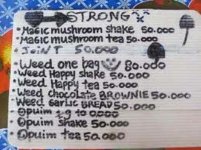 STRONG
Magic mushroom shake 50.000
Magic mushroom tea 50.000
JoiNT 50.000
Weed one bag 80.000
Weed Happy shake 50.000
Weed Happy tea 50.000
Weed Chocolate BROWNIE 50.000
Weed Garlic BREAD 50.000
Opuim 1g to 0.000
Opuim shake 50.000
Opuim tea 50.000